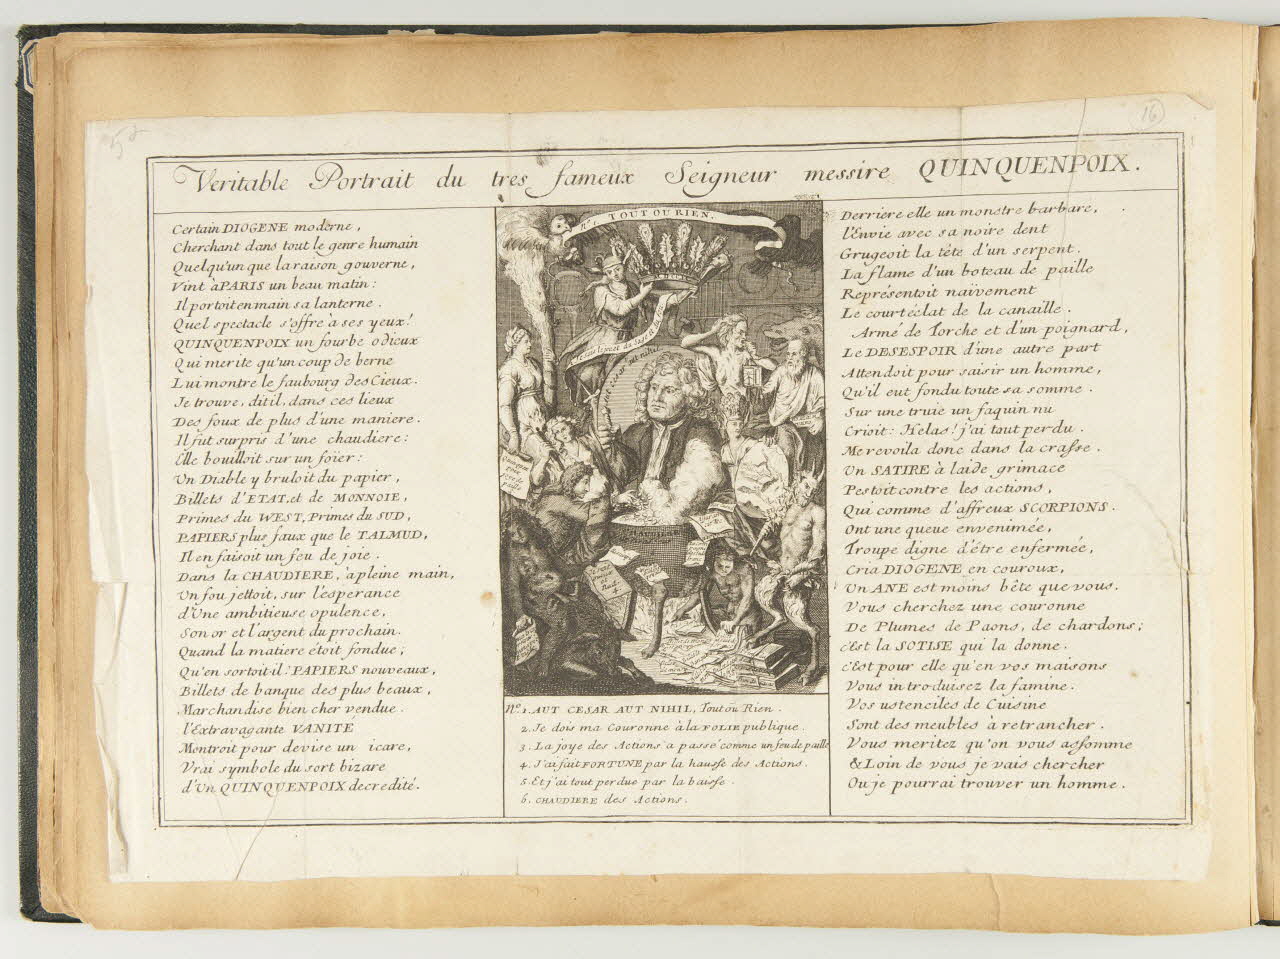 16
Veritable Portrait du tres fameux Seigneur messire QUINQUENPOIX.
Certain DIOGENE moderne,
Cherchant dans tout le genre humain
Quelqu'un que la raison gouverne,
Vint a PARIS un beau matin:
Il portoit en main sa lanterne.
Quel spectacle s'offre à ses yeux!
QUINQUENPOIX un fourbe odieux
Qui merite qu'un coup de berne
Lui montre le faubourg des Cieux.
Je trouve, dit il, dans ces lieux
Des foux de plus d'une maniere.
Il fut surpris d'une chaudiere:
Elle bouilloit sur un foïer:
Un Diable y bruloit du papier,
Billets d'ETAT, et de MONNOIE,
Primes du WEST, Primes du SUD,
PAPIERS plus faux que le TALMUD,
Il en faisoit un feu de joie.
Dans la CHAUDIERE, a pleine main,
Un fou jettoit, sur l'esperance
d'Une ambitieuse opulence,
Son or et l'argent du prochain.
Quand la matiere étoit fondue;
Qu'en sortoit-il? PAPIERS nouveaux,
Billets de banque des plus beaux,
Marchandise bien cher vendue.
l'Extravagante VANITÉ
Montroit pour devise un icare,
Vrai symbole du sort bizare
d'Un QUINQUENPOIX decredité.
No. 1. TOUT OU RIEN.
aut nihil
No. 1. AUT CESAR AUT NIHIL, Tout ou Rien.
2. Je dois ma Couronne à la FOLIE publique.
3. La joye des Actions a passé comme un feu de paille
4. J'ai fait FORTUNE par la hausse des Actions.
5. Et j'ai tout perdue par la baisse.
6. CHAUDIERE des Actions.
Derriere elle un monstre barbare,
l'Envie avec sa noire dent
Grugeoit la tête d'un serpent.
La flame d'un boteau de paille
Représentoit naïvement
Le court éclat de la canaille.
Armé de Torche et d'un poignard,
Le DESESPOIR d'une autre part
Attendoit pour saisir un homme,
Qu'il eut fondu toute sa somme.
Sur une truie un faquin nu
Crioit: Helas! j'ai tout perdu.
Me revoila donc dans la crasse.
Un SATIRE à laide grimace
Pestoit contre les actions,
Qui comme d'affreux SCORPIONS.
Ont une queue envenimée,
Troupe digne d'étre enfermée,
Cria DIOGENE en couroux,
Un ANE est moins bête que vous.
Vous cherchez une couronne
De Plumes de Paons, de chardons;
c'Est la SOTISE qui la donne.
c'Est pour elle qu'en vos maisons
Vous introduisez la famine.
Vos ustenciles de Cuisine
Sont des meubles à retrancher.
Vous meritez qu'on vous assomme
& Loin de vous je vais chercher
Ou je pourrai trouver un homme.